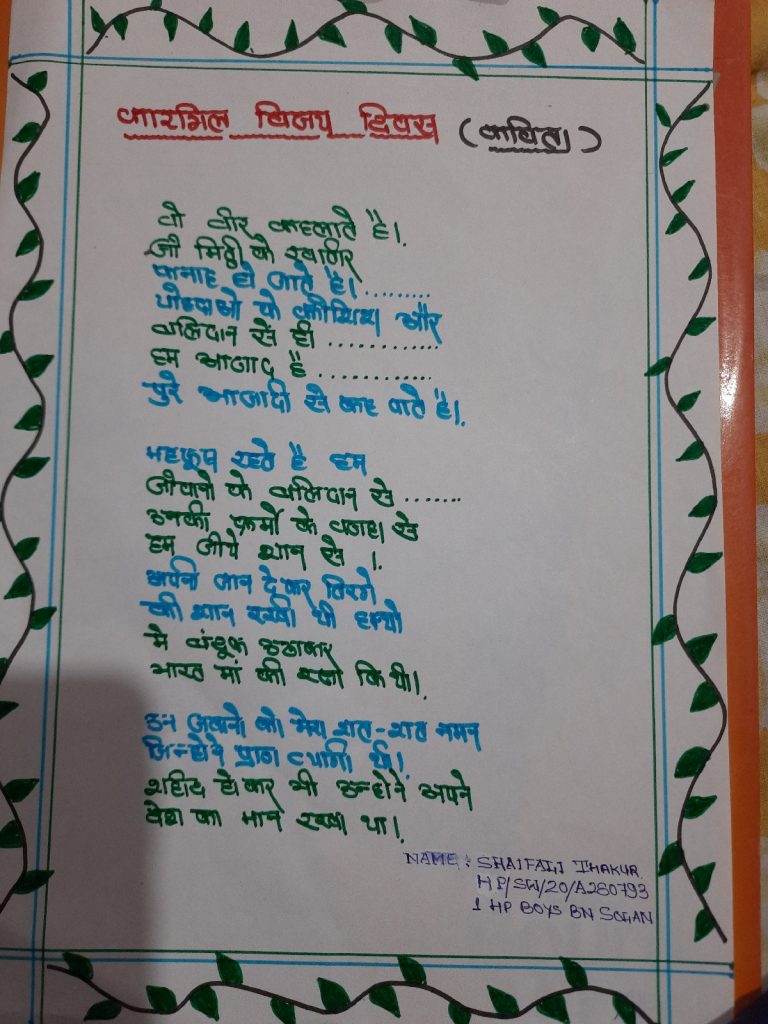 कारगिल विजय दिवस (कविता)
वो वीर कहलाते है।.
जो मिट्टी के खातिर
फानाह हो जाते है।.........
योध्दाओ के और
बलिदान से ही ............
हम आजाद है ............
पुरे आजादी से कह पाते है।.
महफूज रहते है हम
जीवानो के बलिदान से .......
उनकी कर्मो के वजहा से
हम जीये शान से ।.
अपनी जान देकर तिरंगे
की शान रखी थी हाथो
मे बंदूक उठाकर
भारत मां की रक्षा कि थी।.
उन जवानो को मेरा शत-शत नमन
जिन्होने प्राण त्यागे था।.
शहीद होकर भी उन्होने अपने
देश का मान रखा था।.
NAME : SHAIFALI THAKUR
HP/SW/20/A280793
1 HP BOYS BN SOLAN